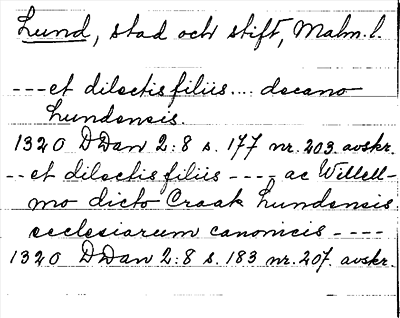 Lund, stad och stift, Malm. l.
---et dilectis filiis... decano
Lundensis.
1320 DDan 2:8 s. 177 nr. 203. avskr.
--et dilectis filiis ---- ac Willell-
mo dicto Craak Lundensis
ecclesiarum canonicis ----
1320 DDan 2:8 s. 183 nr. 207. avskr.